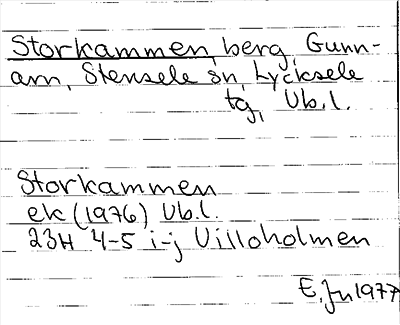 Storkammen, berg, Gunn-
arn, Stensele sn, Lycksele
tg, Vb.l.
Storkammen
ek (1976) Vb.l.
23H 4-5 i-j Villoholmen
E.Jn 1977